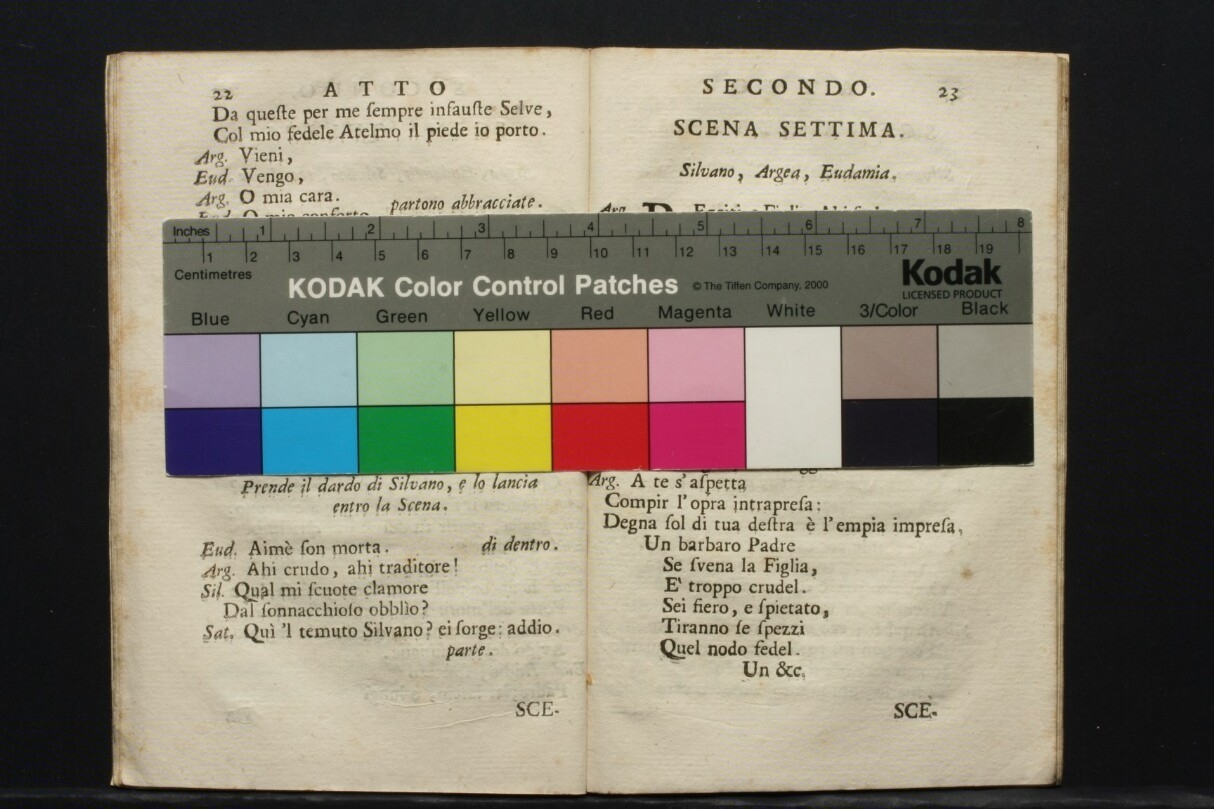 22 ATTO
Da queſte per me ſempre infauſte Selve,
Col mio fedele Atelmo il piede io porto.
Arg. Vieni,
Eud. Vengo,
Arg. O mia cara.
partono abbracciate.
Eud. O mio conforto
Prende il dardo di Silvano, e lo lancia
entro la Scena.
Eud. Aimè ſon morta. di dentro.
Arg. Ahi crudo, ahi traditore!
Sil. Qual mi ſcuote clamore
Dal ſonnacchioſo obblìo?
Sat. Quì 'l temuto Silvano? ei ſorge: addio.
parte.
SCE-
SECONDO. 23
SCENA SETTIMA.
Silvano, Argea, Eudamia.
Arg.
Arg. A te s'aſpetta
Compir l'opra intrapreſa:
Degna ſol di tua deſtra è l'empia impreſa,
Un barbaro Padre
Se ſvena la Figlia,
E' troppo crudel.
Sei fiero, e ſpietato,
Tiranno ſe ſpezzi
Quel nodo fedel.
Un &c.
SCE-
Inches 1 2 3 4 5 6 7 8
1 2 3 4 5 6 7 8 9 10 11 12 13 14 15 16 17 18 19
Centimetres
KODAK Color Control Patches © The Tiffen Company, 2000
Kodak
LICENSED PRODUCT
Blue Cyan Green Yellow Red Magenta White 3/Color Black